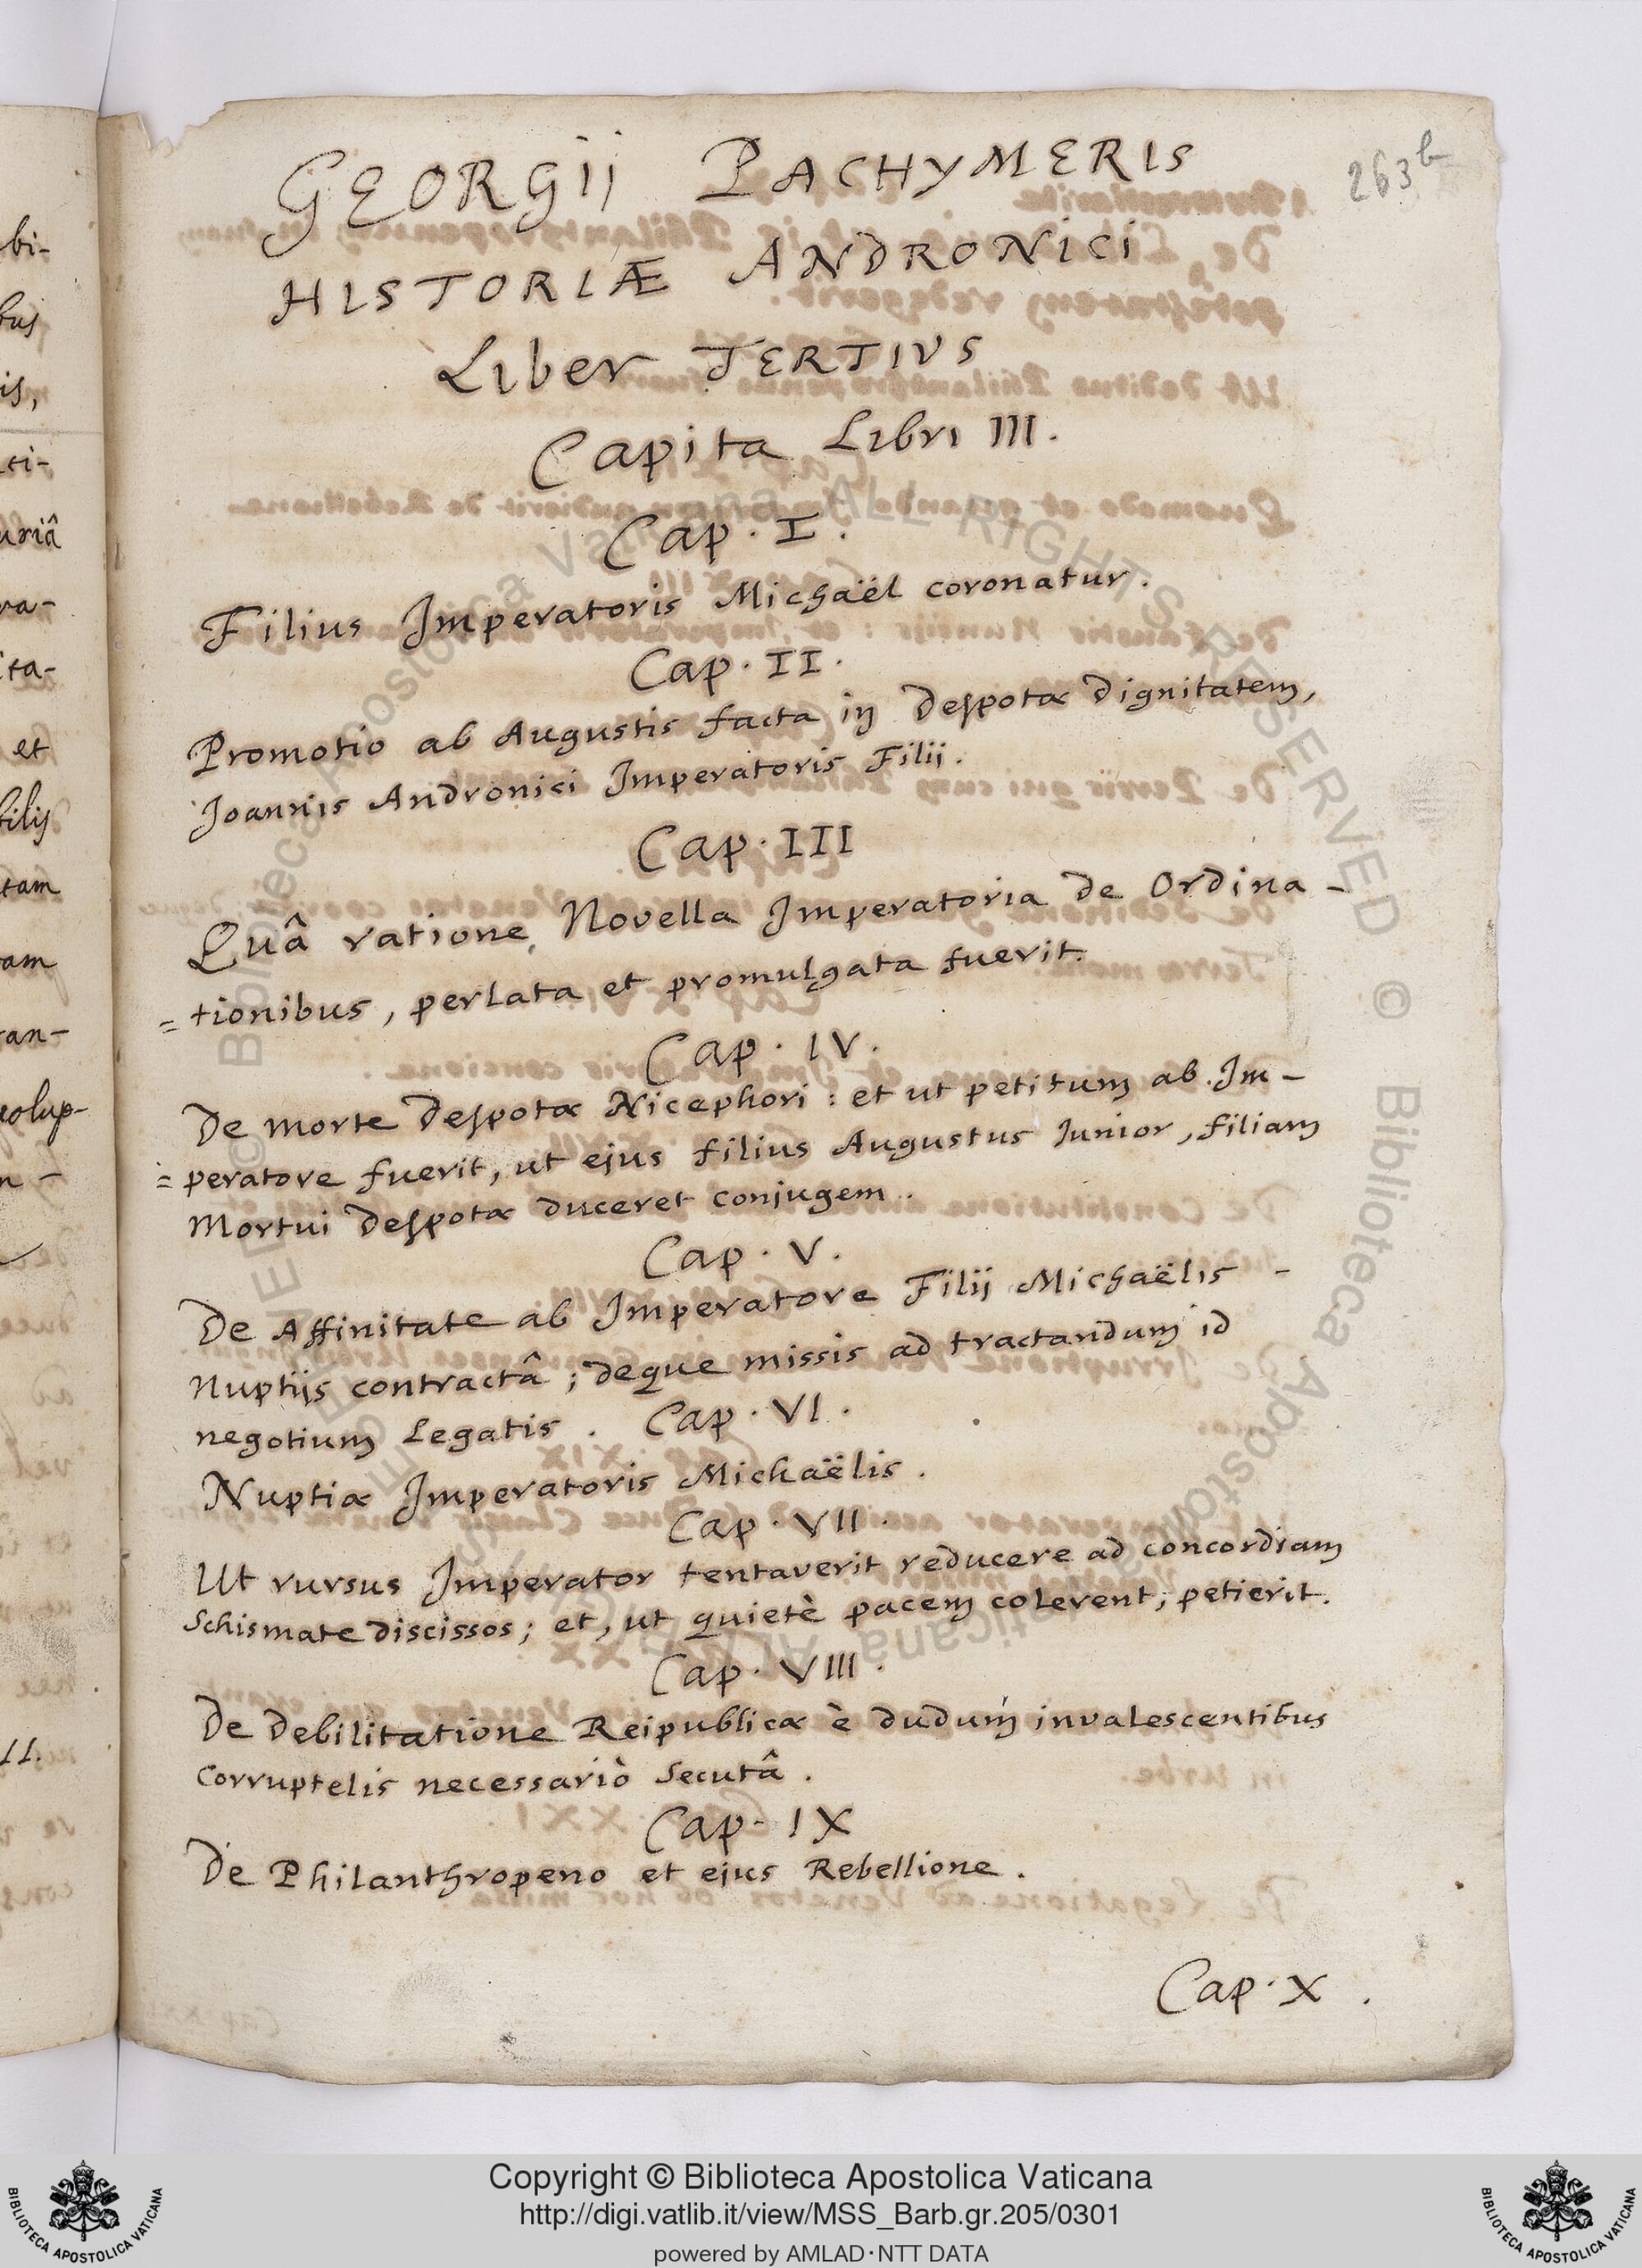 263b
GEORGIJ PACHYMERIS
HISTORIÆ ANDRONICI
Liber TERTIVS
Capita Libri III.
Cap. I.
Filius Imperatoris Michaël coronatur.
Cap. II.
Promotio ab Augustis facta in Despotæ Dignitatem,
Joannis Andronici Imperatoris Filij.
Cap. III
Quâ ratione Novella Imperatoria de Ordina-
=tionibus, perlata et promulgata fuerit.
Cap. IV.
De morte Despotæ Nicephori: et ut petitum ab Im-
=peratore fuerit, ut ejus filius Augustus Junior, filiam
Mortui Despotæ duceret conjugem.
Cap. V.
De Affinitate ab Imperatore Filij Michaëlis -
Nuptijs contractâ; deque missis ad tractandum id
negotium Legatis. Cap. VI.
Nuptiæ Imperatoris Michaëlis.
Cap. VII.
Ut rursus Imperator tentaverit reducere ad concordiam
Schismate discissos; et, ut quietè pacem colerent, petierit.
Cap. VIII.
De Debilitatione Reipublicæ è dudum invalescentibus
Corruptelis necessariò Secutâ.
Cap. IX
De Philanthropeno et ejus Rebellione.
Cap. X.
bi-
bus
is,
ti-
uriâ
ra-
ita-
et
tam
am
an-
volup-
n-
II.
Biblioteca Apostolica Vaticana ALL RIGHTS RESERVED ©
Copyright © Biblioteca Apostolica Vaticana
http://digi.vatlib.it/view/MSS_Barb.gr.205/0301
powered by AMLAD·NTT DATA
BIBLIOTECA APOSTOLICA VATICANA
BIBLIOTECA APOSTOLICA VATICANA